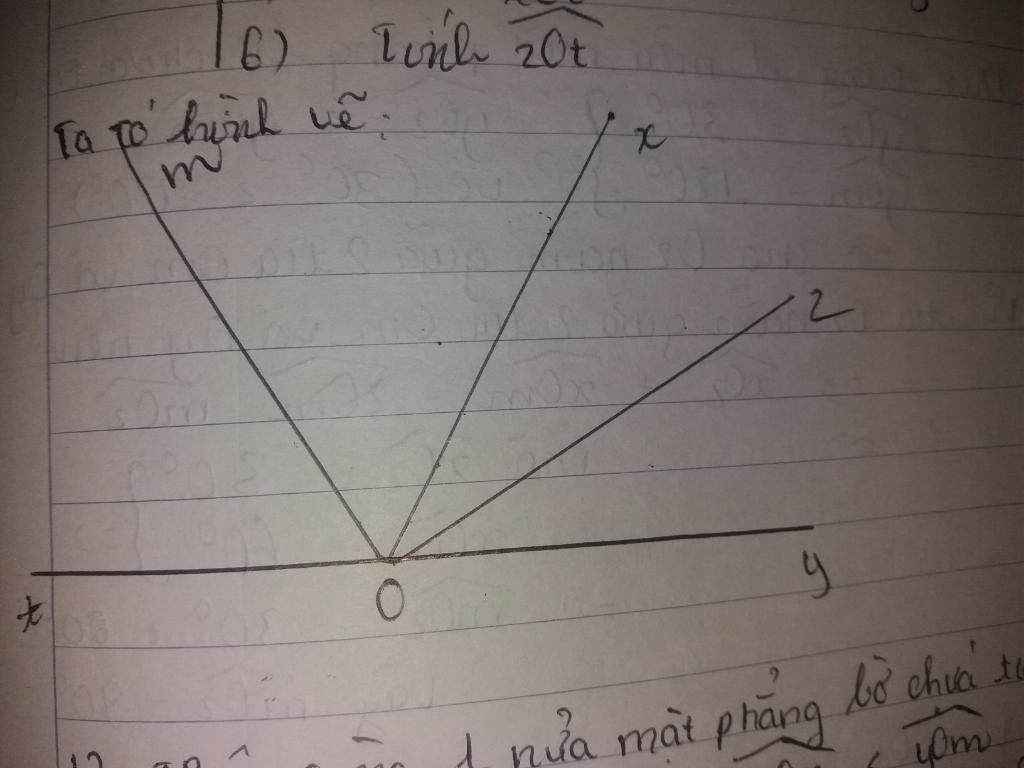 6) Tính zOt
Ta có hình vẽ:
m
x
z
y
O
t
nửa mặt phẳng bờ chứa
yOm